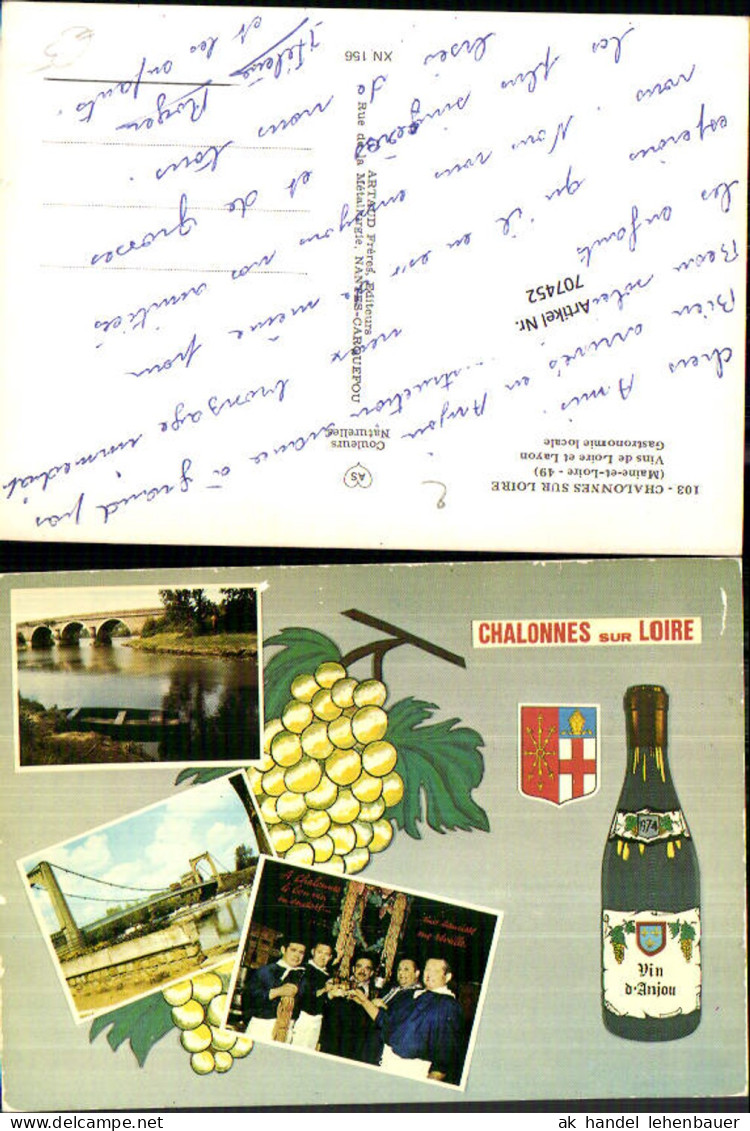 103 - CHALONNES SUR LOIRE
(Maine-et-Loire - 49)
Vins de Loire et Layon
Gastronomie locale
AS
Couleurs
Naturelles
ARTAUD Frères, Editeurs
Rue de la Métallurgie, NANTES-CARQUEFOU
XN 156
Artikel Nr.
707452
chers Amis.
Bien arrivés en Anjou
Beau soleil
les enfants
espérons qu'il en est de même pour
vous. Nous vous envoyons nos amitiés
les plus sincères et de grosses
bises de nous tous.
Hélène Roger
et les enfants.
CHALONNES SUR LOIRE
1974
Vin
d'Anjou
A Chalonnes
le bon vin
me réveille
ak handel lehenbauer